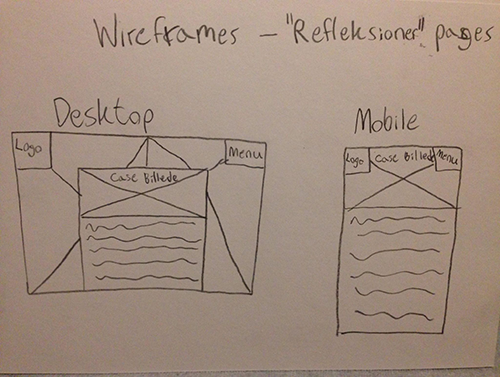 Wireframes - "Refleksioner" pages
Desktop
Mobile
Logo
Menu
Case Billede
Logo
Case Billede
Menu